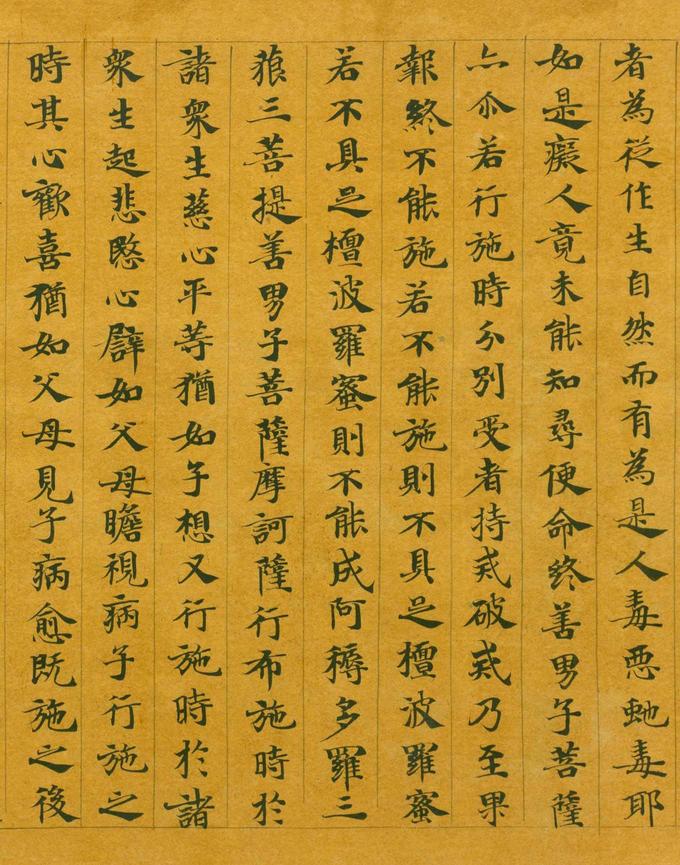 者為從作生自然而有為是人毒惡虵毒耶
如是癡人竟未能知尋便命終善男子菩薩
亦尒若行施時分別受者持戒破戒乃至果
報終不能施若不能施則不具足檀波羅蜜
若不具足檀波羅蜜則不能成阿耨多羅三
藐三菩提善男子菩薩摩訶薩行布施時於
諸衆生慈心平等猶如子想又行施時於諸
衆生起悲愍心譬如父母瞻視病子行施之
時其心歡喜猶如父母見子病愈既施之後